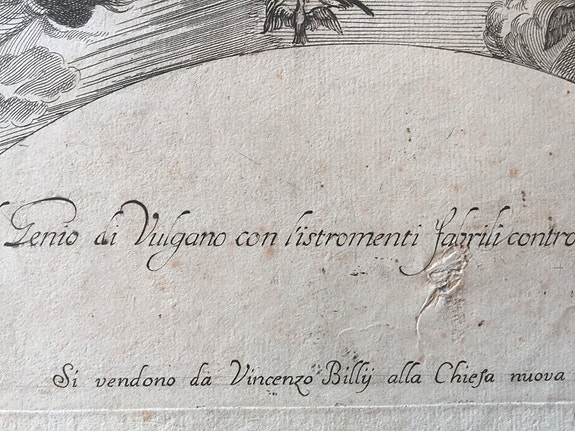 Genio di Vulgano con l'istromenti fabrili contro
Si vendono da Vincenzo Billÿ alla Chiesa nuova